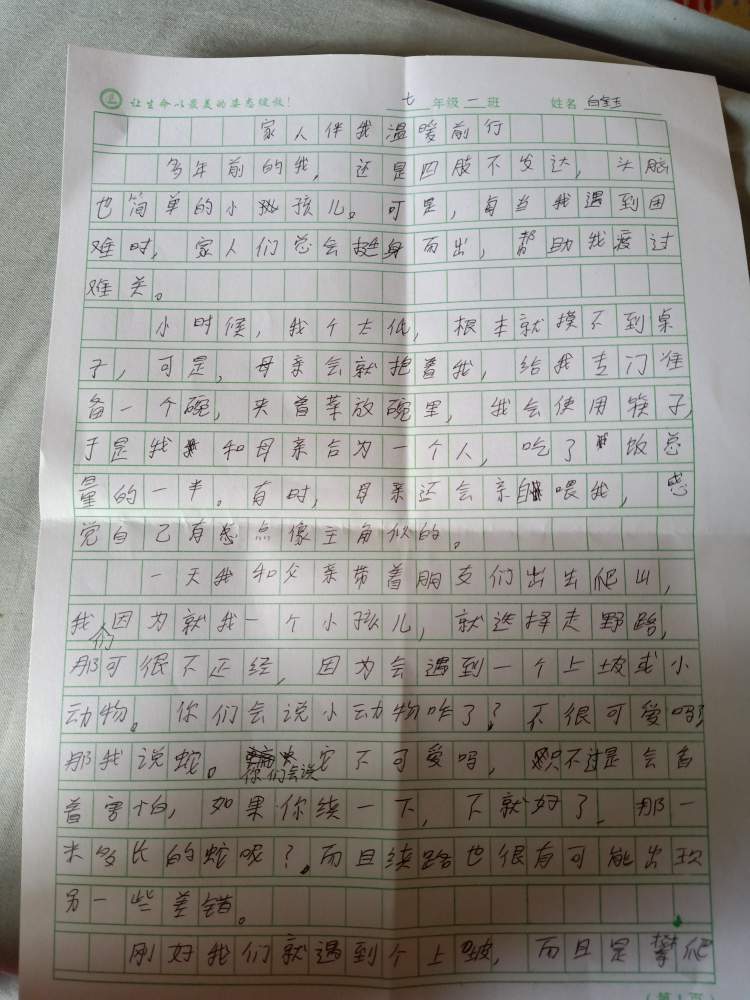 让生命以最美的姿态绽放! 七年级一班 姓名
家人伴我温暖前行
多年前的我,还是四肢不发达,头脑
也简单的小孩儿。可是,每当我遇到困
难时,家人们总会挺身而出,帮助我度过
难关。
小时候,我个太低,根本就摸不到桌
子,可是,母亲会就抱着我,给我专门准
备一个碗,夹着菜放碗里,我会使用筷子,
于是我和母亲合为一个人,吃了饭总
量的一半。有时,母亲还会亲自喂我,感
觉自己有点像主角似的。
一天我和父亲带着朋友们出去爬山,
我们因为就我一个小孩儿,就选择走野路,
那可很不正经,因为会遇到一个上坡或小
动物。你们会说小动物咋了?不很可爱吗?
那我说蛇。你们会说它不可爱吗,只不过是会看
着害怕,如果你绕一下,不就好了。那一
米多长的蛇呢?而且绕路也很有可能出现
另一些差错。
刚好我们就遇到个上坡,而且是攀爬